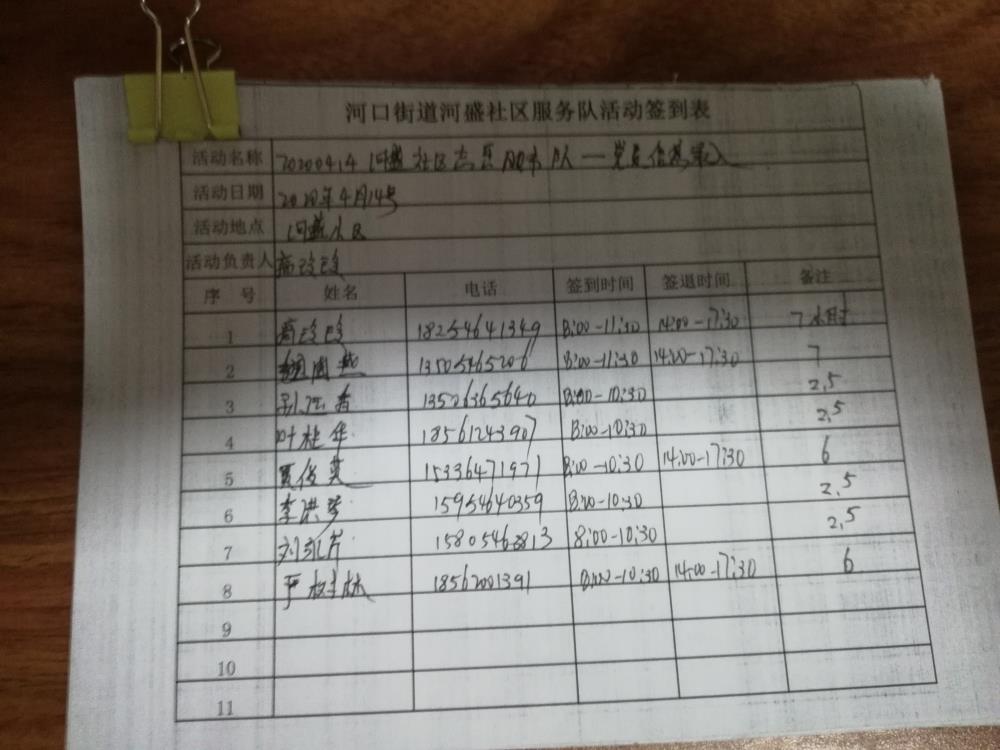 河口街道河盛社区服务队活动签到表
活动名称 20200414 河盛社区志愿服务队一党员信息录入
活动日期 2020年4月14号
活动地点 河盛小区
活动负责人 高玲玲
序号 姓名 电话 签到时间 签退时间 备注
1 高玲玲 18254641349 8:00-11:30 14:00-17:30 7小时
2 13505465206 8:00-11:30 14:00-17:30 7
3 13506365640 8:00-10:30 2.5
4 叶桂华 18561243907 8:00-10:30 2.5
5 贾俊英 15336471971 8:00-10:30 14:00-17:30 6
6 李洪梦 15954640359 8:00-10:30 2.5
7 15805462813 8:00-10:30 2.5
8 18562001391 8:00-10:30 14:00-17:30 6
9
10
11